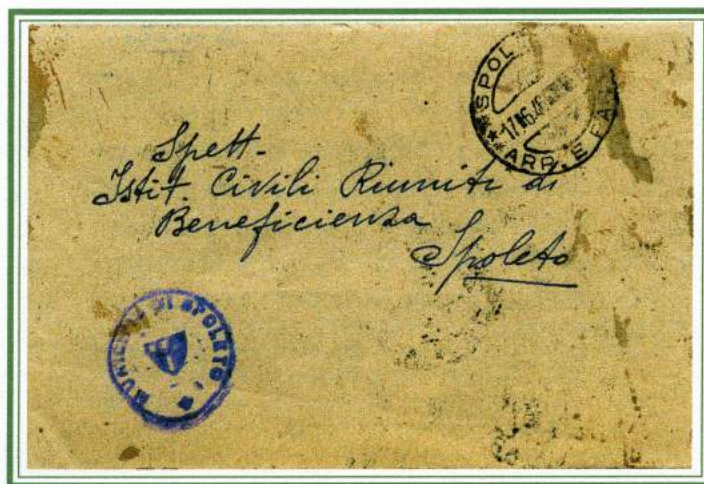 SPOL
17.6.4
ARR. E PA
Spett-
Istit. Civili Riuniti di
Beneficienza
Spoleto
MUNICIPIO DI SPOLETO